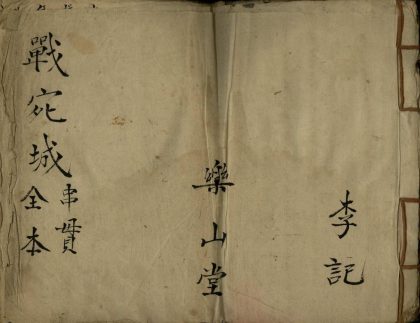 李記
樂山堂
戰宛城
串貫
全本